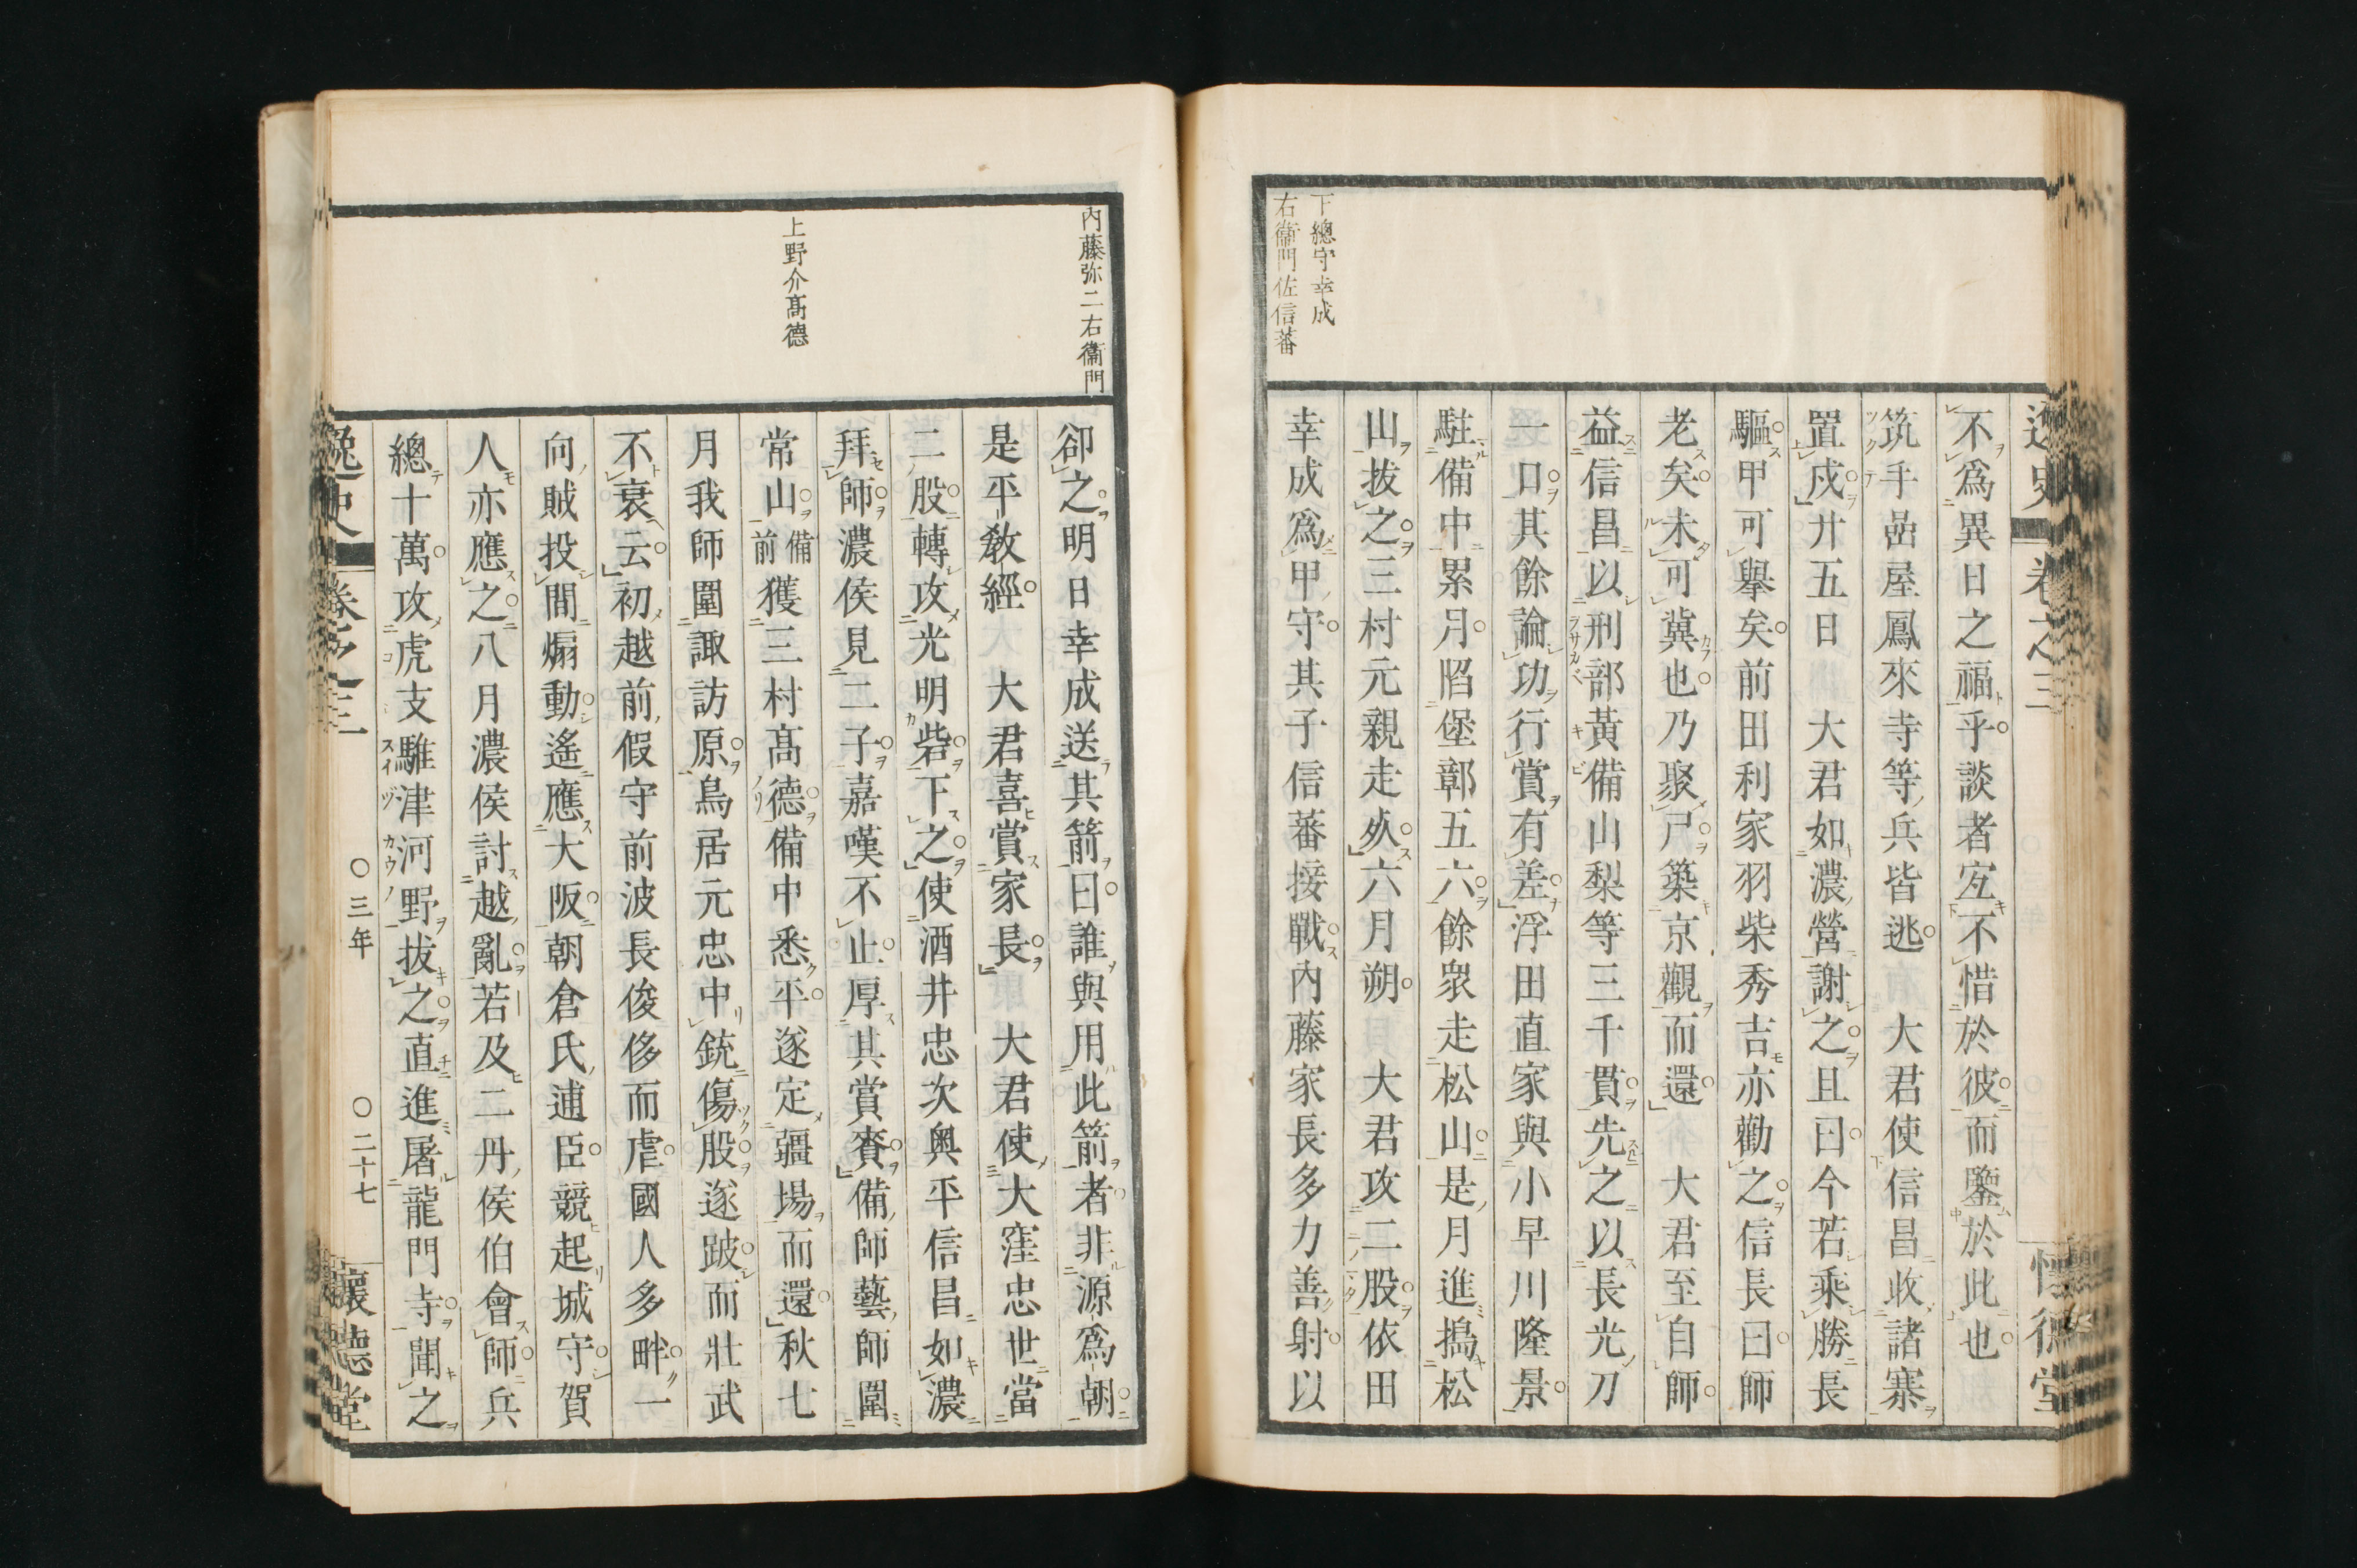 逸史
卷之三
懷德堂
下總守幸成
右衞門佐信蕃
不爲異日之福乎談者宐不惜於彼而鑒於此也
筑手嵒屋鳳來寺等兵皆逃　大君使信昌收諸寨
置戍廿五日　大君如濃營謝之且曰今若乘勝長
驅甲可擧矣前田利家羽柴秀吉亦勸之信長曰師
老矣未可冀也乃聚尸築京觀而還　大君至自師
益信昌以刑部黃備山梨等三千貫先之以長光刀
一口其餘論功行賞有差浮田直家與小早川隆景
駐備中累月陷堡鄣五六餘衆走松山是月進搗松
山拔之三村元親走死六月朔　大君攻二股依田
幸成爲甲守其子信蕃接戰內藤家長多力善射以
內藤弥二右衞門
上野介髙德
卻之明日幸成送其箭曰誰與用此箭者非源爲朝
是平敎經　大君喜賞家長　大君使大窪忠世當
二股轉攻光明砦下之使酒井忠次奥平信昌如濃
拜師濃侯見二子嘉嘆不止厚其賞賚備師藝師圍
常山備前獲三村髙德備中悉平遂定疆場而還秋七
月我師圍諏訪原鳥居元忠中銃傷股遂跛而壯武
不衰云初越前假守前波長俊侈而虐國人多畔一
向賊投間煽動遙應大阪朝倉氏逋臣競起城守賀
人亦應之八月濃侯討越亂若及二丹侯伯會師兵
總十萬攻虎支騅津河野拔之直進屠龍門寺聞之
逸史
卷之三
〇三年
〇二十七
懷德堂